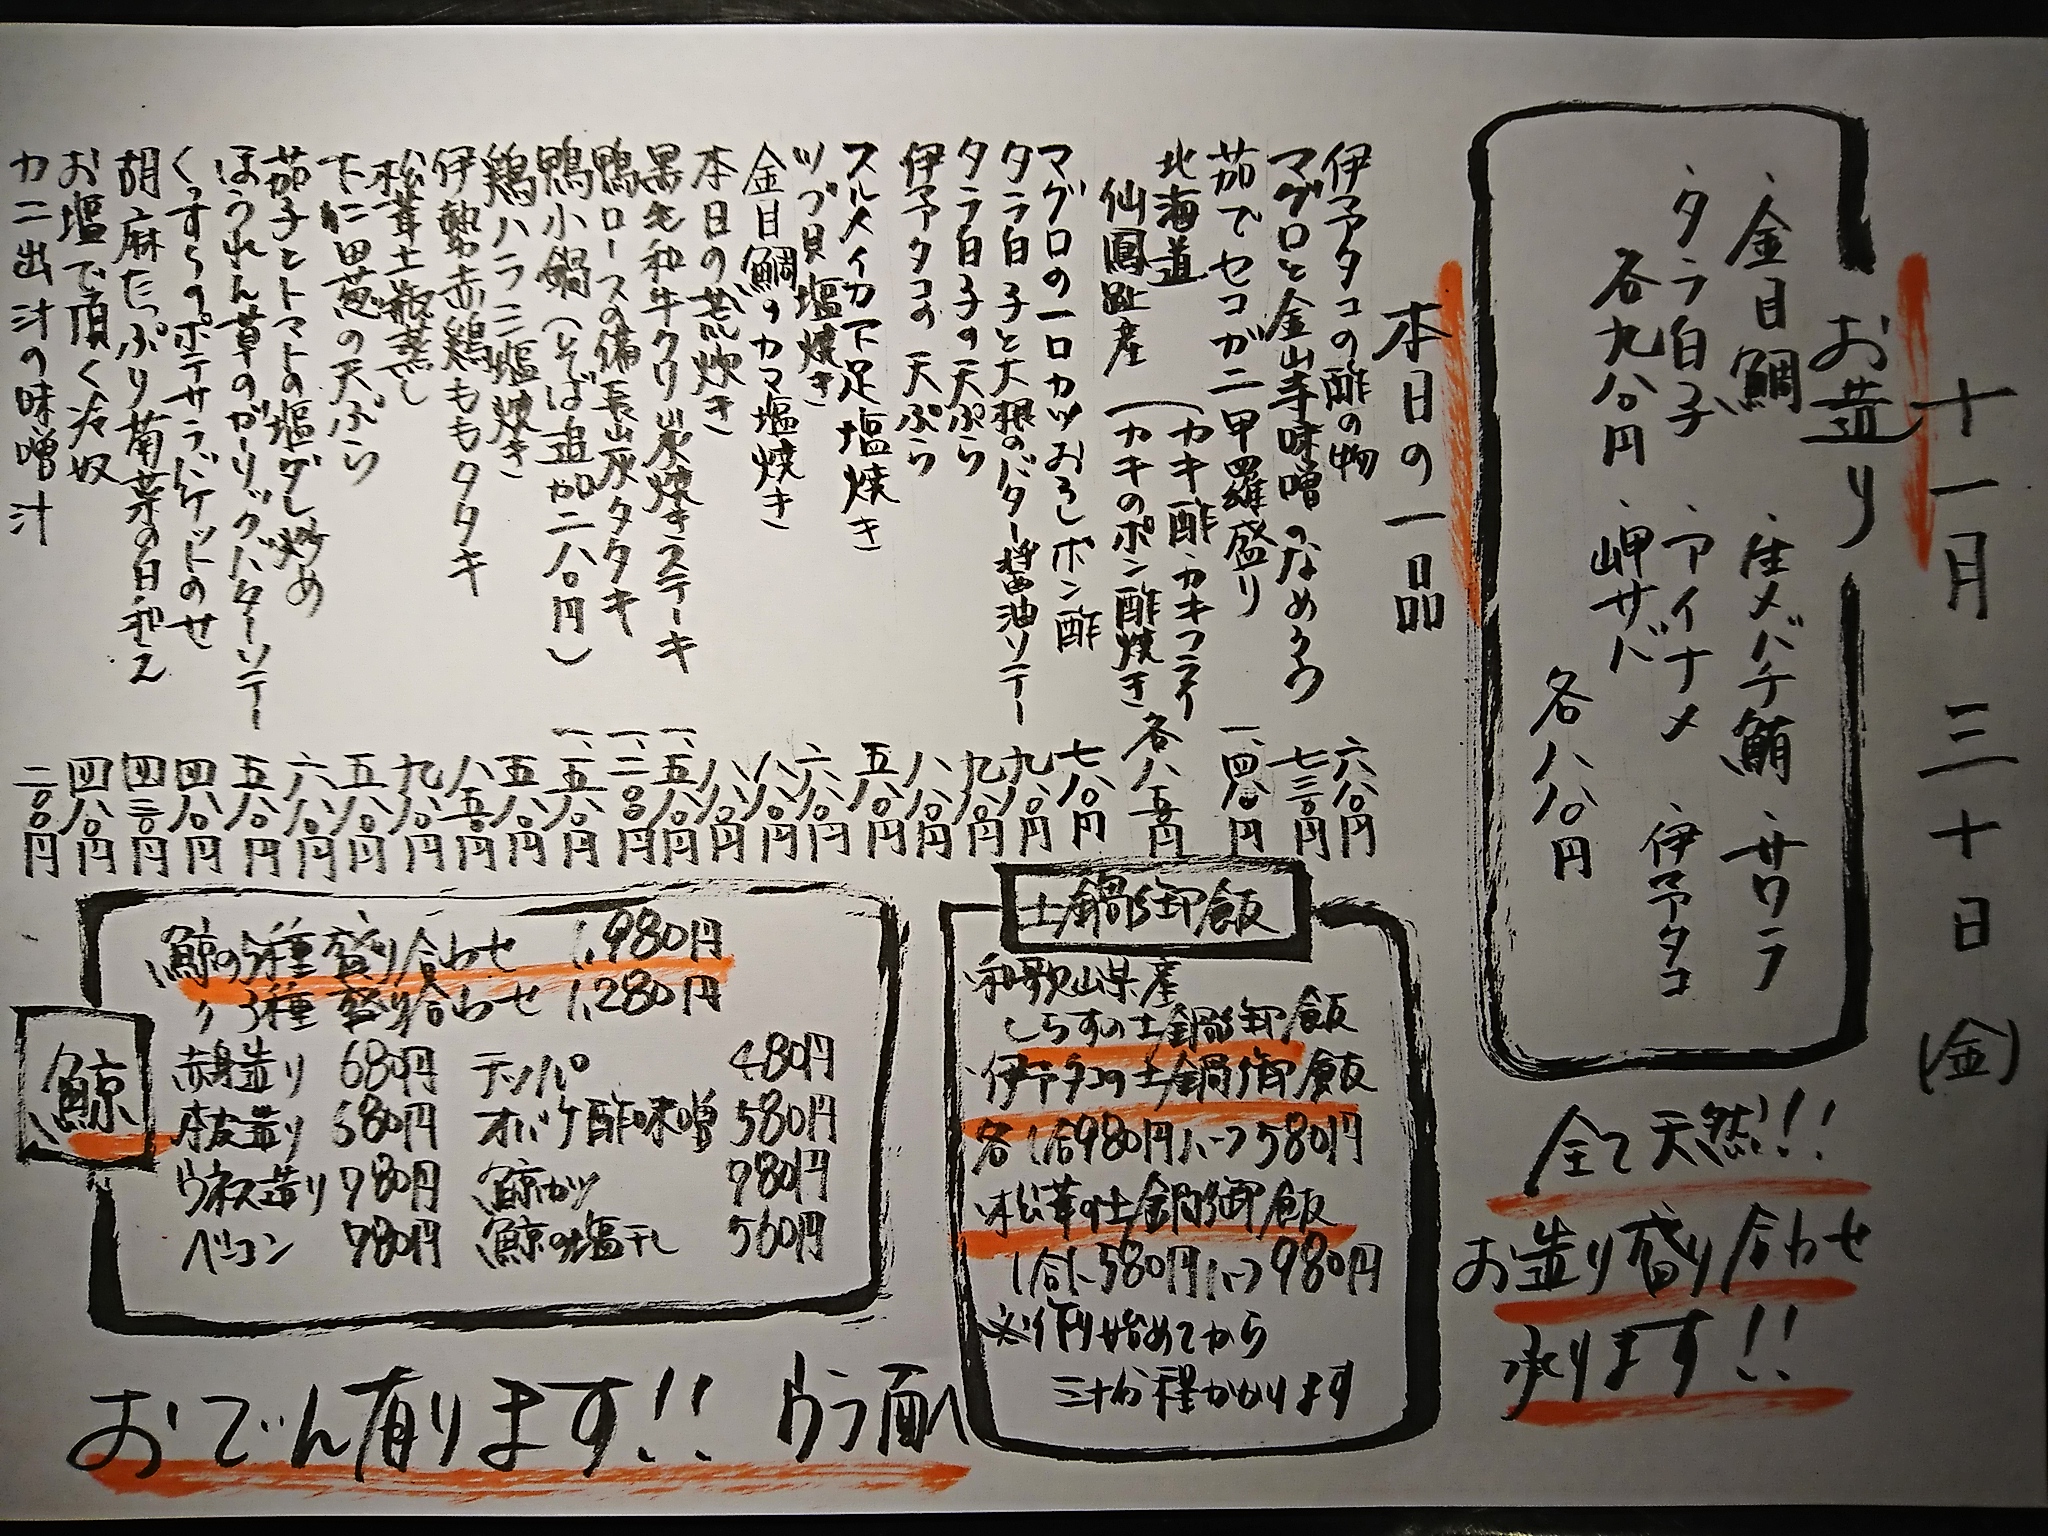 十一月三十日(金)
お造り
・金目鯛 ・生メバチ鮪 ・サワラ
・タラ白子 ・アイナメ ・伊予タコ
各九八〇円 ・岬サバ
各八八〇円
全て天然!!
お造り盛り合わせ
承ります!!
本日の一品
伊予タコの酢の物 六八〇円
マグロと金山寺味噌のなめろう 七三〇円
茹でセコガニ甲羅盛り 一、四八〇円
北海道
仙鳳趾産
(カキ酢・カキフライ
(カキのポン酢焼き 各八五〇円
マグロの一口カツおろしポン酢 七八〇円
タラ白子と大根のバター醤油ソテー 九八〇円
タラ白子の天ぷら 九八〇円
伊予タコの天ぷら 八八〇円
スルメイカ下足塩焼き 五八〇円
ツブ貝塩焼き 六八〇円
金目鯛のカマ塩焼き 八八〇円
本日の荒炊き 八八〇円
黒毛和牛クリ炭焼きステーキ 一、五八〇円
鴨ロースの備長炭タタキ 一、二〇〇円
鴨小鍋(そば追加二八〇円) 一、五八〇円
鶏ハラミ塩焼き 五八〇円
伊勢赤鶏ももタタキ 八五〇円
松茸土瓶蒸し 九八〇円
下仁田葱の天ぷら 五八〇円
茄子とトマトの塩ダレ炒め 六八〇円
ほうれん草のガーリックバターソテー 五八〇円
くずし豆のポテサラバケットのせ 四八〇円
胡麻たっぷり菊菜の白和え 四三〇円
お塩で頂く冷奴 四八〇円
カニ出汁の味噌汁 二〇〇円
土鍋御飯
・和歌山県産
しらすの土鍋御飯
・伊予タコの土鍋御飯
各1合980円ハーフ580円
・松茸の土鍋御飯
1合1,580円ハーフ980円
※作り始めてから
三十分程かかります
鯨
鯨の5種盛り合わせ 1,980円
〃 3種盛り合わせ 1,280円
赤身造り 680円 テッパ 480円
本皮造り 680円 オバケ酢味噌 580円
ウネス造り 980円 鯨カツ 980円
ベーコン 980円 鯨の塩干し 560円
おでん有ります!! ウラ面へ